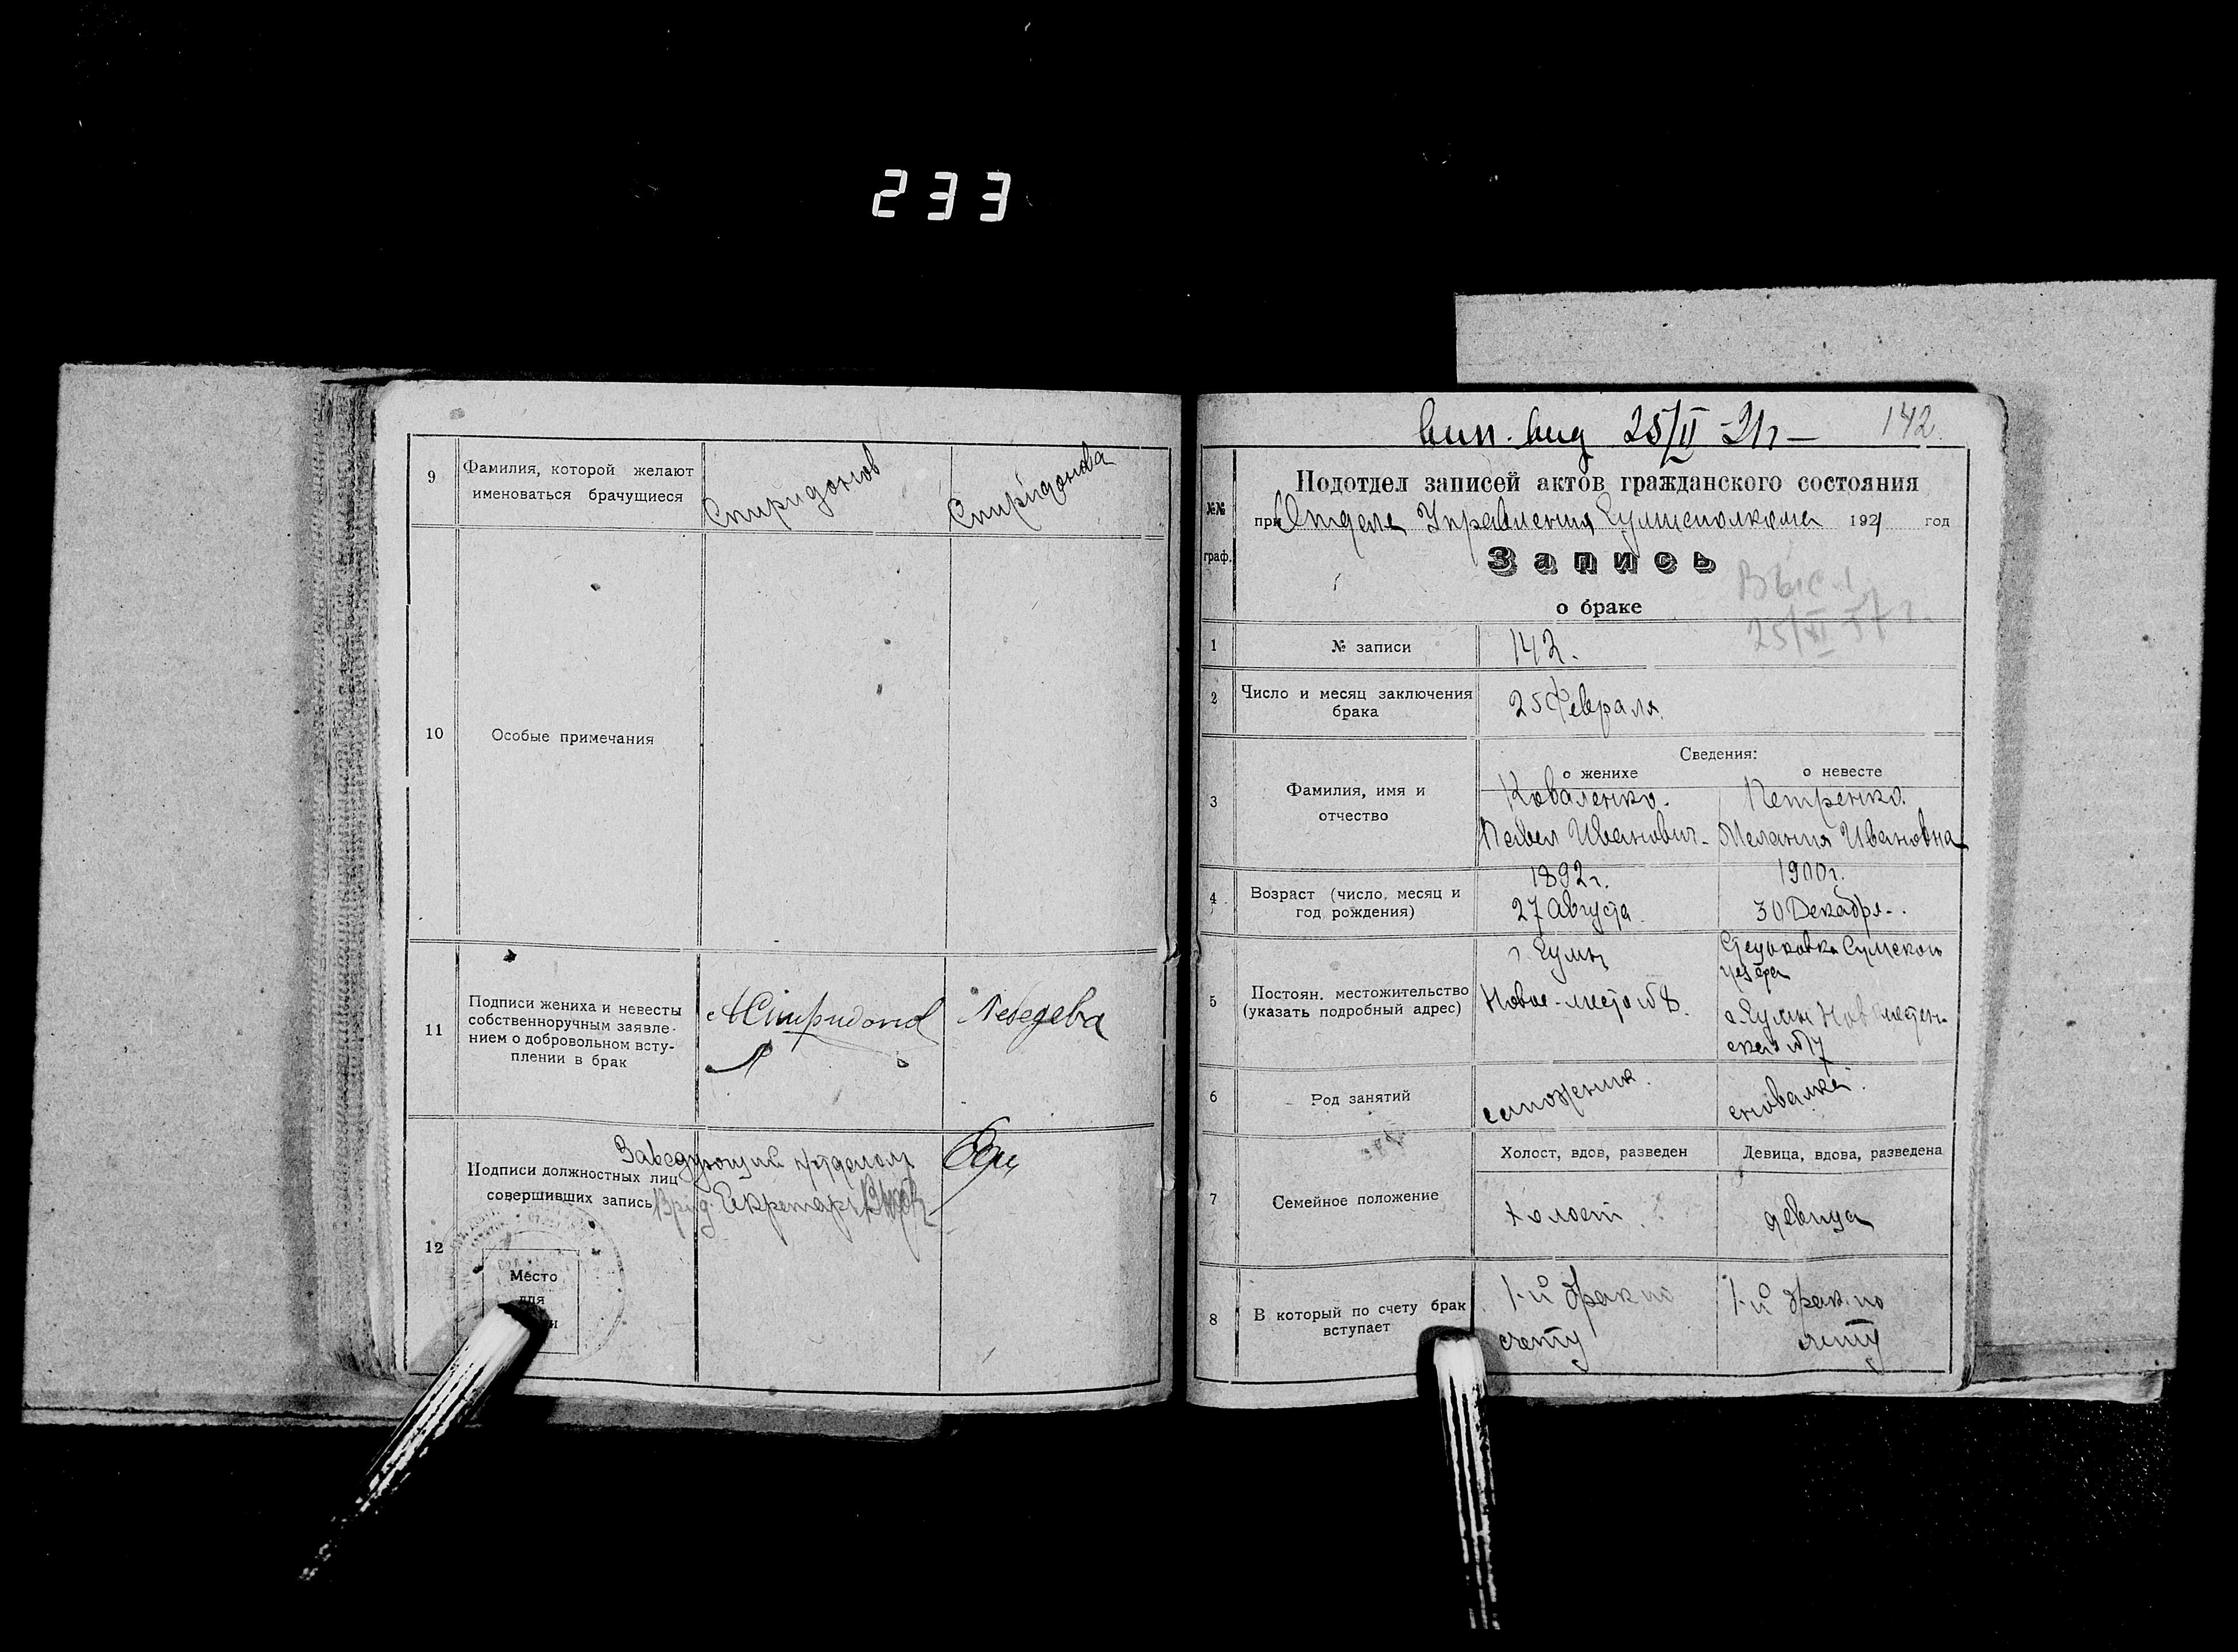 233
9
Фамилия, которой желают
именоваться брачущиеся
Спиридонов
Спиридонова
10
Особые примечания
11
Подписи жениха и невесты
собственноручным заявле-
нием о добровольном всту-
плении в брак
Спиридонов
Лебедева
12
Заведующий п/отделом
Подписи должностных лиц
совершивших запись
Врид. Секретаря
Место
для
вид 25/II-21г-
142
№№
граф.
Подотдел записей актов гражданского состояния
при Отделе Управления Сумисполкома 1921 год
Запись
о браке
25/XI 57 г.
1
№ записи
142.
2
Число и месяц заключения
брака
25 Февраля
Сведения:
о женихе
о невесте
3
Фамилия, имя и
отчество
Коваленко.
Павел Иванович.
Петренко.
Мелания Ивановна
4
Возраст (число, месяц и
год рождения)
1892г.
27 Августа.
1900г.
30 Декабря.
5
Постоян. местожительство
(указать подробный адрес)
г. Сумы
Новое-место №8.
Сумского
уезда
г. Сумы Новоместен-
ская №17
6
Род занятий
сапожник.
сновалка.
7
Семейное положение
Холост, вдов, разведен
Девица, вдова, разведена
холост.
девица
8
В который по счету брак
вступает
1-й брак по
счету
1-й брак по
счету